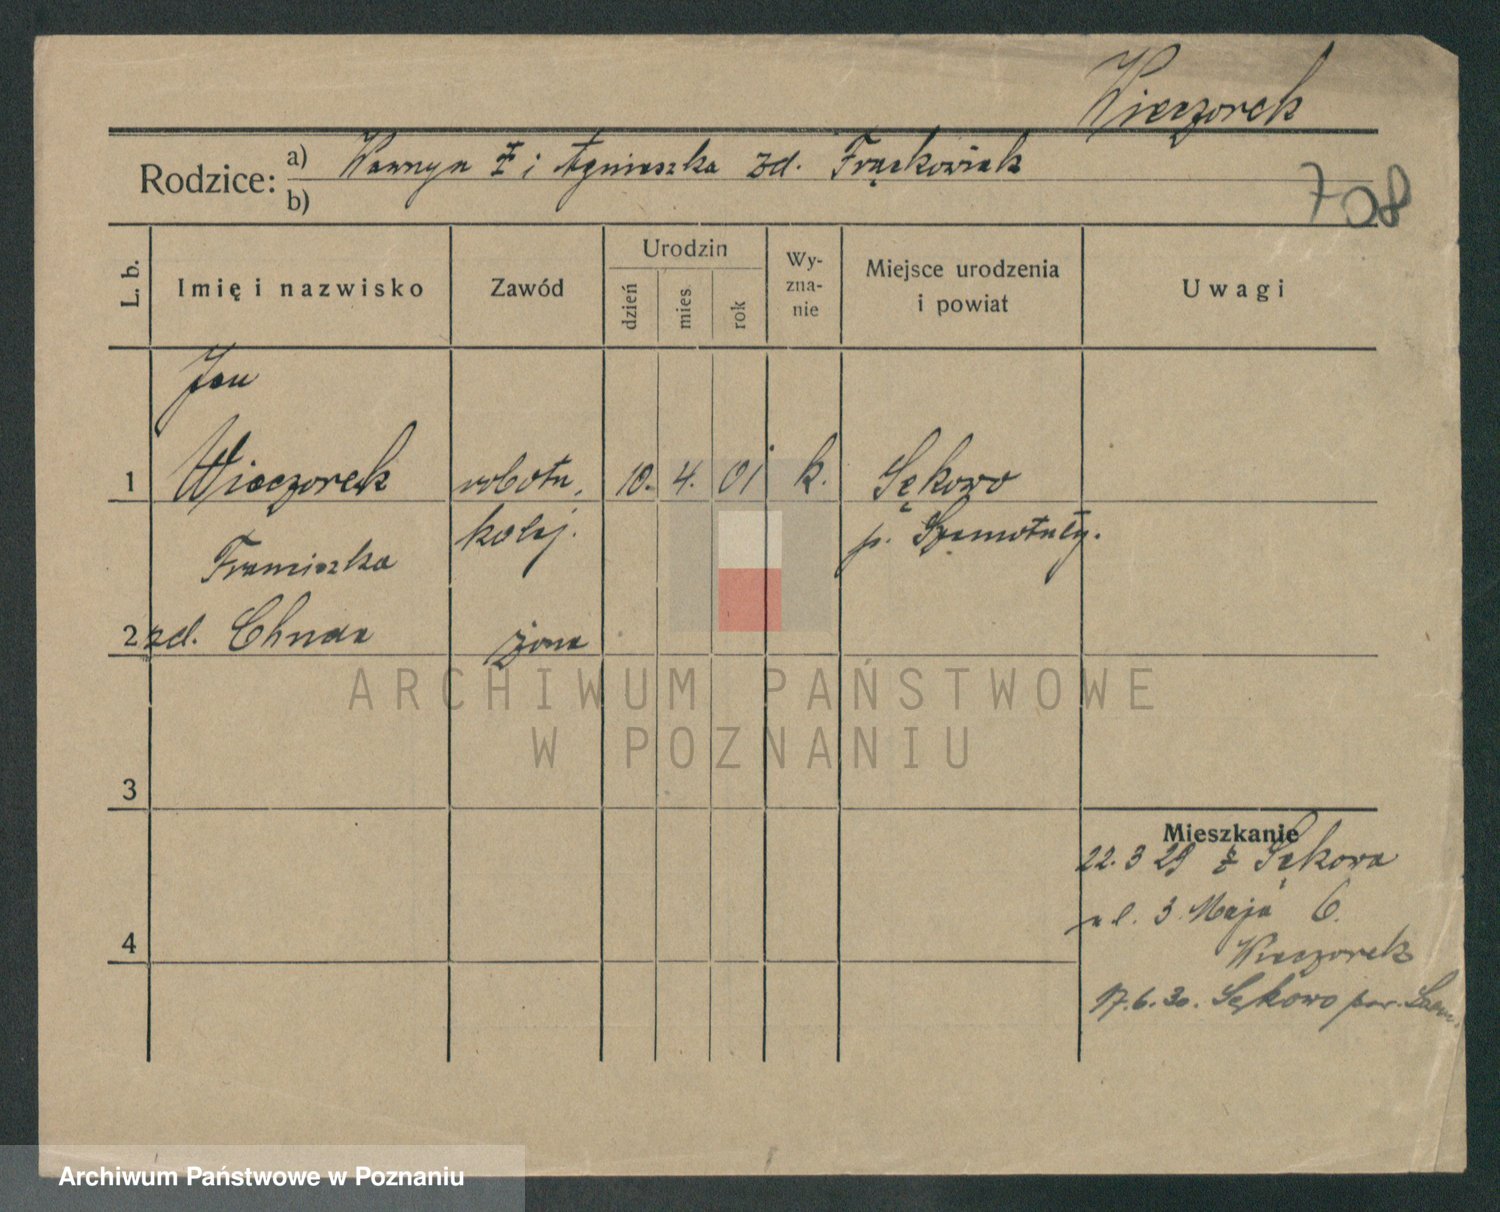 Wieczorek
Rodzice: a) Wawrzyn i Agnieszka zd. Frąckowiak
b)
708
L. b.
Imię i nazwisko
Zawód
Urodzin
dzień
mies.
rok
Wy-
zna-
nie
Miejsce urodzenia
i powiat
Uwagi
Jan
1 Wieczorek robotn. 10. 4. 01 k. Sękowo
kolej. p. Szamotuły.
Franciszka
2 zd. żona
3
4
Mieszkanie
22.3 29 z Sękowa
ul. 3 Maja 6.
Wieczorek
17.6.30. Sękowo pow. Szam.
ARCHIWUM PAŃSTWOWE
W POZNANIU
Archiwum Państwowe w Poznaniu